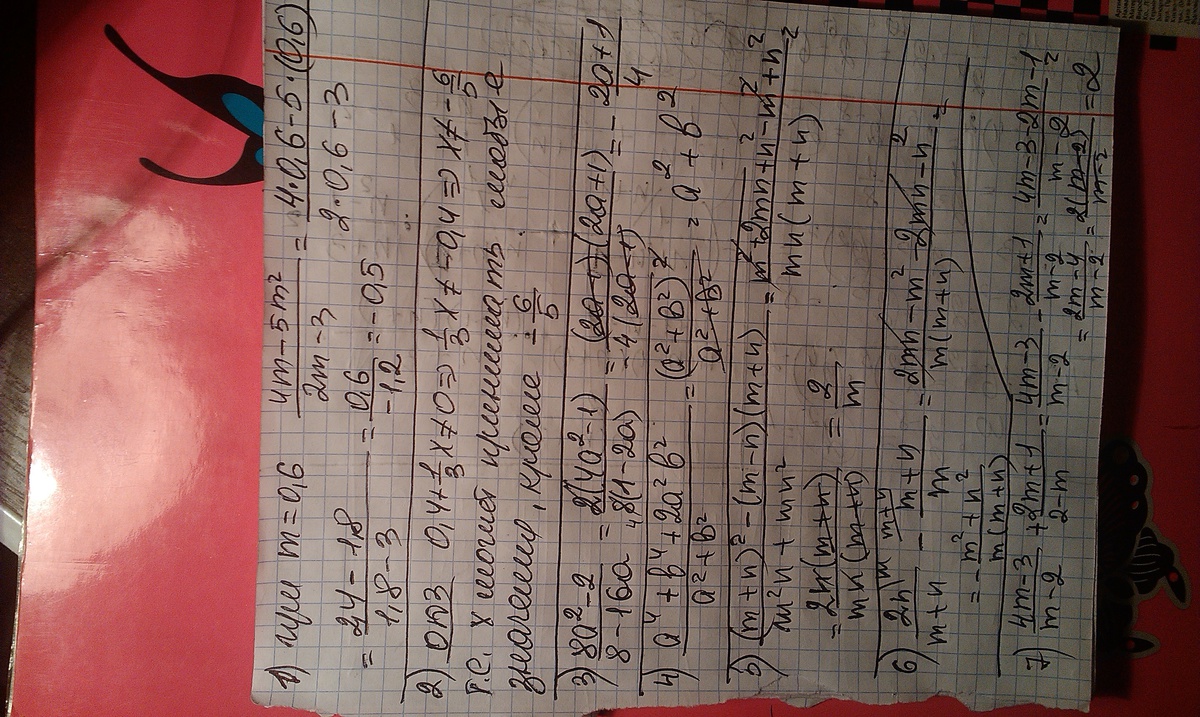 1) при m=0,6 (4m-5m²)/(2m-3) = (4·0,6-5·(0,6))/(2·0,6-3)
= (2,4-1,8)/(1,8-3) = 0,6/-1,2 = -0,5
2) ОПЗ 0,4+1/3x≠0 ⇒ 1/3x≠-0,4 ⇒ x≠-6/5
т.е. x может принимать любые
значения, кроме -6/5
3) (8a²-2)/(8-16a) = 2(4a²-1)/8(1-2a) = (2a-1)(2a+1)/-4(2a-1) = -(2a+1)/4
4) (a⁴+b⁴+2a²b²)/(a²+b²) = (a²+b²)²/(a²+b²) = a²+b²
5) ((m+n)²-(m-n)(m+n))/(m²n+mn²) = (m²+2mn+n²-m²+n²)/(mn(m+n))
= 2n(m+n)/mn(m+n) = 2/m
6) 2n/(m+n) - (m+n)/m = (2mn-m²-2mn-n²)/(m(m+n)) =
= -(m²+n²)/(m(m+n))
7) (4m-3)/(m-2) + (2m+1)/(2-m) = (4m-3)/(m-2) - (2m+1)/(m-2) = (4m-3-2m-1)/(m-2)
= (2m-4)/(m-2) = 2(m-2)/(m-2) = 2